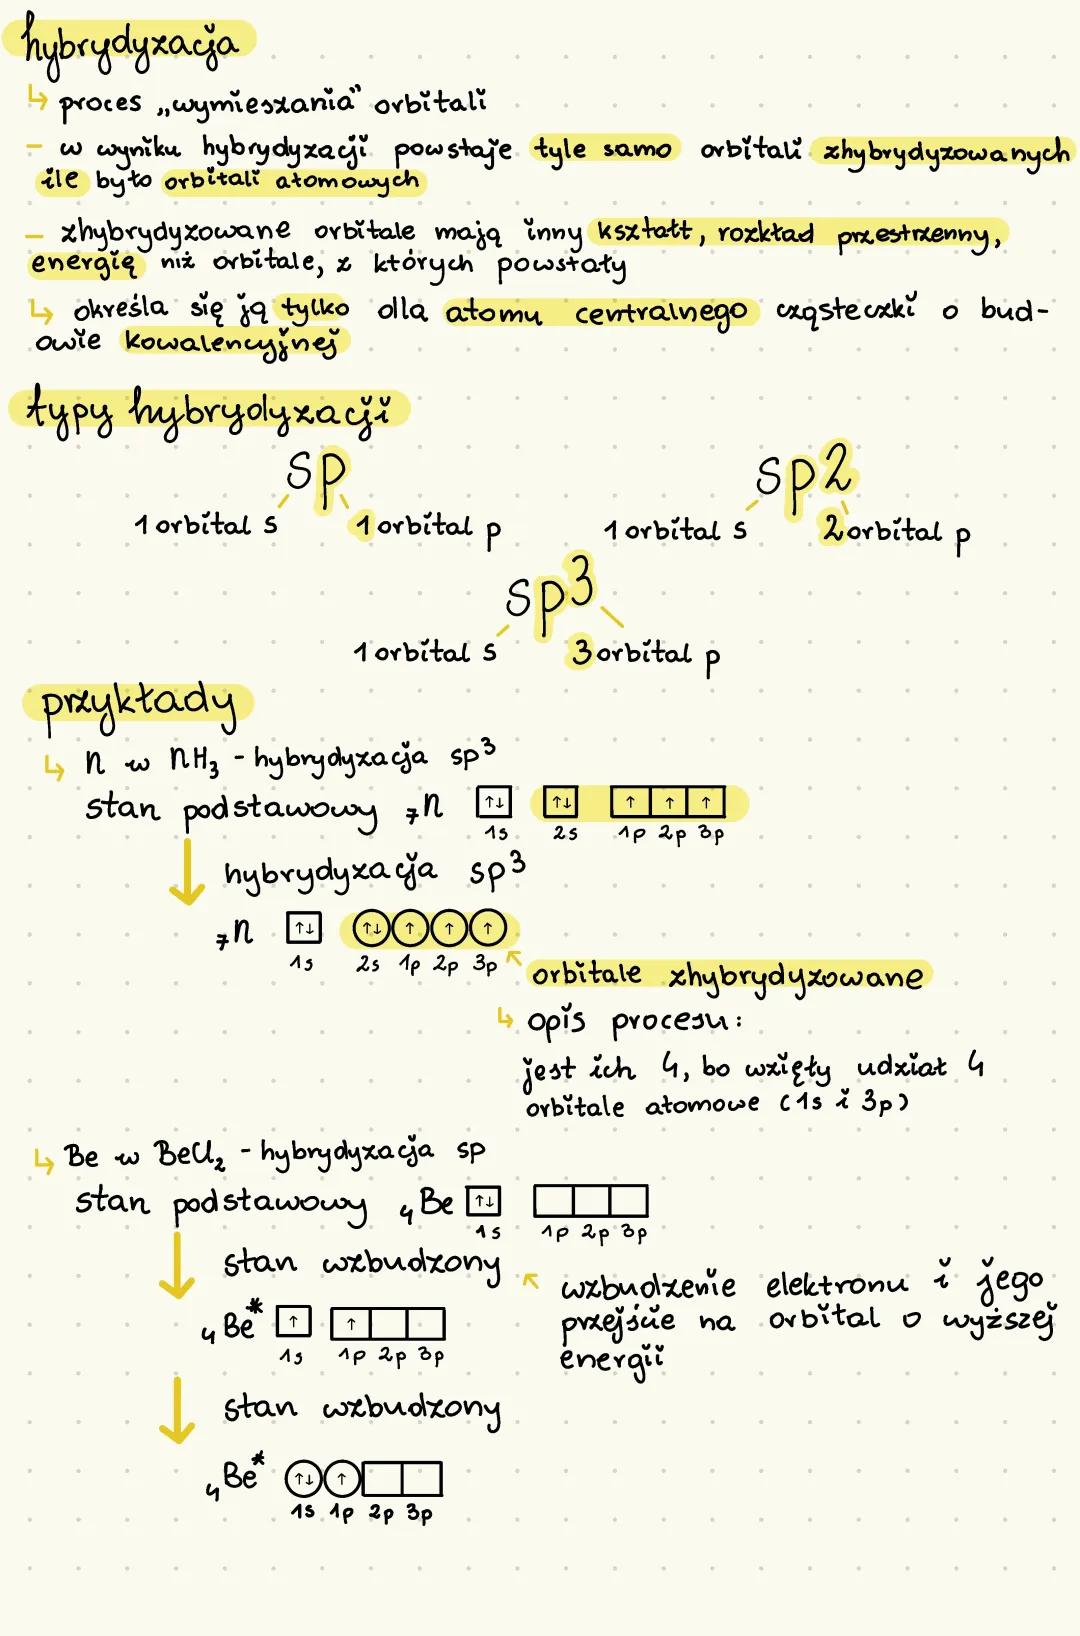 hybrydyzacja
↳ proces „wymieszania" orbitali
- w wyniku hybrydyzacji powstaje tyle samo orbitali zhybrydyzowanych
ile było orbitali atomowych
- zhybrydyzowane orbitale mają inny kształt, rozkład przestrzenny,
energię niż orbitale, z których powstały
↳ określa się ją tylko dla atomu centralnego cząsteczki o bud-
owie kowalencyjnej
typy hybrydyzacji
sp
1 orbital s 1 orbital p
sp2
1 orbital s 2 orbital p
sp³
1 orbital s 3 orbital p
przykłady
↳ N w NH₃ - hybrydyzacja sp³
stan podstawowy ₇N ↑↓ ↑↓ ↑ ↑ ↑
1s 2s 1p 2p 3p
hybrydyzacja sp³
₇N ↑↓ ↑↓ ↑ ↑ ↑
1s 2s 1p 2p 3p
orbitale zhybrydyzowane
↳ opis procesu:
jest ich 4, bo wzięły udział 4
orbitale atomowe (1s i 3p)
↳ Be w BeCl₂ - hybrydyzacja sp
stan podstawowy ₄Be ↑↓
1s 1p 2p 3p
stan wzbudzony
wzbudzenie elektronu i jego
przejście na orbital o wyższej
energii
₄Be* ↑ ↑
1s 1p 2p 3p
stan wzbudzony
₄Be* ↑↓ ↑
1s 1p 2p 3p